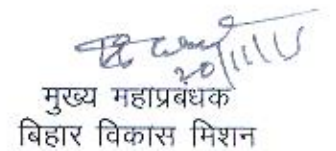 20/11/15
मुख्य महाप्रबंधक
बिहार विकास मिशन